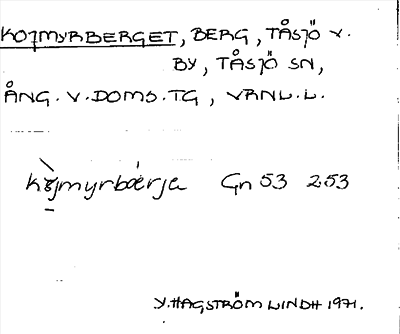 KOJMYRBERGET, BERG, TÅSJÖ V.
BY, TÅSJÖ SN,
ÅNG. V. DOMS. TG, VRNL. L.
Gn 53 253
Y. HAGSTRÖM LINDH 1971.